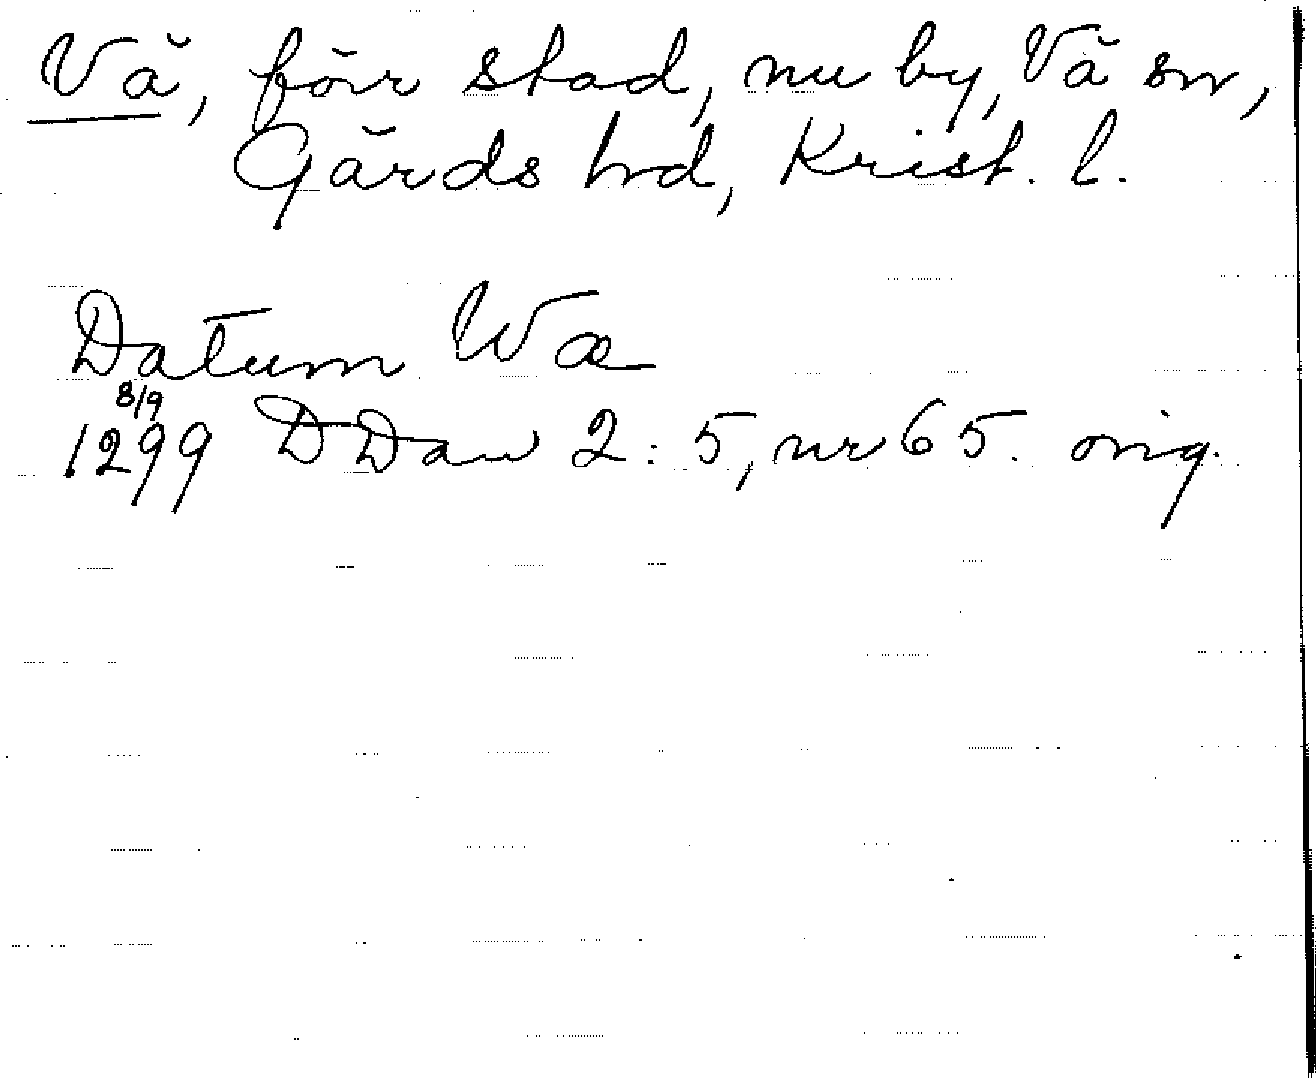 Vä, förr stad, nu by, Vä sn,
Gärds hd, Krist. l.
Datum Wæ
8/9
1299 DDan 2:5, nr 65. orig.